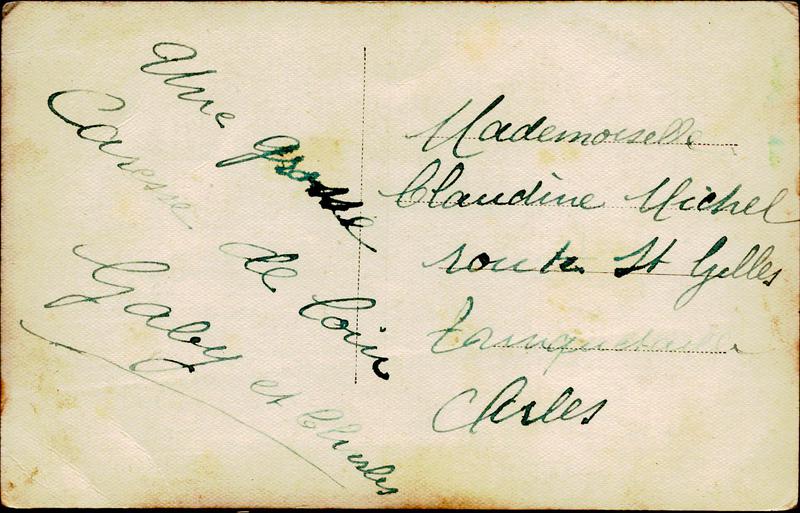 Une grosse
Caresse de loin
Gaby et Charles
Mademoiselle
Claudine Michel
route St Gilles
Trinquetaille
Arles